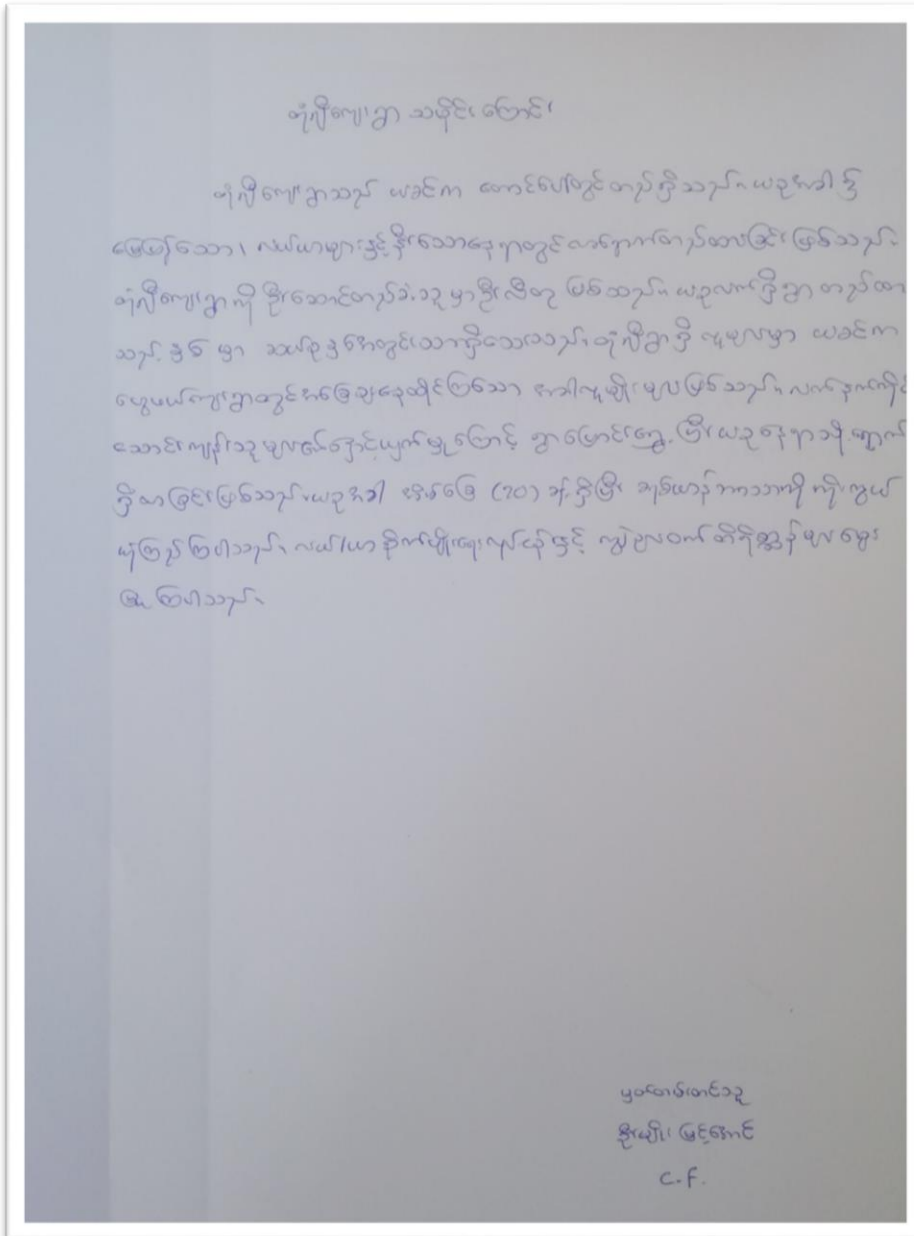 တုံလီကျေးရွာ သမိုင်းကြောင်း
တုံလီကျေးရွာသည် ယခင်က တောင်ပေါ်တွင်တည်ရှိသည်။ ယခုအခါ ၌
မြေပြန့်သော၊ လယ်ယာများနှင့်နီးသောနေရာတွင်လာရောက်တည်ထားခြင်းဖြစ်သည်။
တုံလီကျေးရွာကို ဦးဆောင်တည်ခဲ့သူမှာဦးလီတု ဖြစ်သည်။ ယခုလက်ရှိရွာတည်ထား
သည့်နှစ်မှာ ဆယ်စုနှစ်အတွင်းသာရှိသေးသည်။ တုံလီရွာရှိ လူများမှာ ယခင်က
ကျေးရွာတွင်အခြေချနေထိုင်ကြသော အာခါလူမျိုးများဖြစ်သည်။ လက်နက်ကိုင်
သောင်းကျန်းသူများ၏နှောင့်ယှက်မှုကြောင့် ရွာပြောင်းရွှေ့ပြီးယခုနေရာသို့ရောက်
ရှိလာခြင်းဖြစ်သည်။ ယခုအခါ အိမ်ခြေ (၃၀) ခန့်ရှိပြီး ခရစ်ယာန်ဘာသာကို ကိုးကွယ်
ယုံကြည်ကြပါသည်။ လယ်/ယာစိုက်ပျိုးရေးလုပ်ငန်းနှင့် ကျွဲ၊နွား၊ဝက်တိရိစ္ဆာန်များမွေး
မြူကြပါသည်။
မှတ်တမ်းတင်သူ
ဦးမျိုးမြင့်အောင်
C.F.